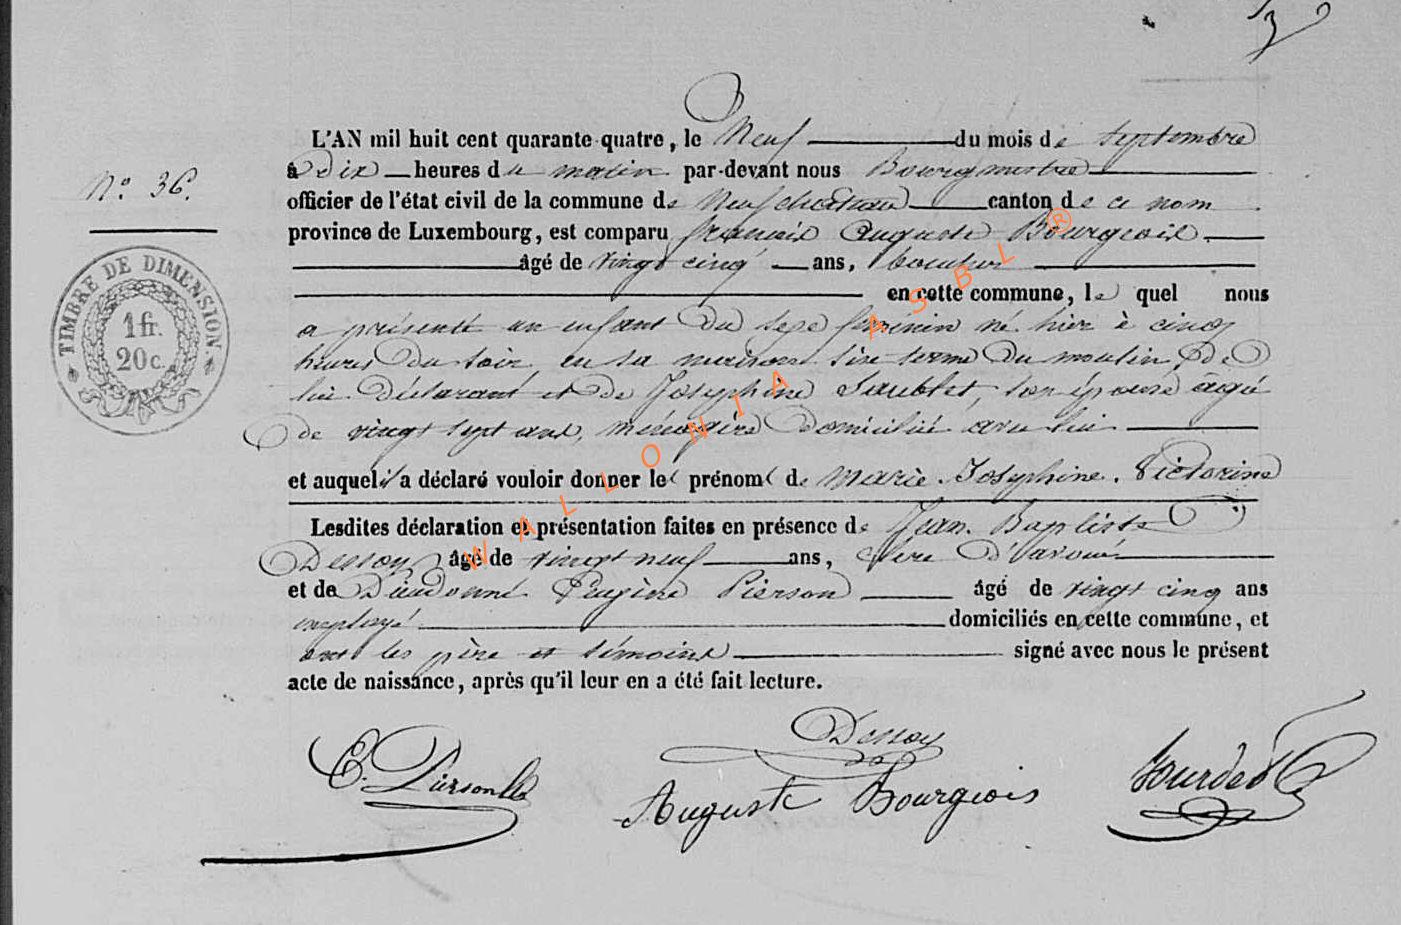 L'AN mil huit cent quarante-quatre, le Neuf du mois de septembre
à Dix heures du matin par-devant nous Bourgmestre
N° 36.
officier de l'état civil de la commune de Neufchateau canton de ce nom
province de Luxembourg, est comparu françois Auguste Bourgeois.
âgé de vingt cinq ans,
en cette commune, le quel nous
a présenté un enfant du sexe féminin né hier à cinq
heures du soir, en sa maison sise terme du moulin, de
lui déclarant et de Joséphine son épouse agée
de vingt sept ans, ménagère domiciliée avec lui
et auquel il a déclaré vouloir donner les prénoms de Marie. Joséphine. Victorine
Lesdites déclaration et présentation faites en présence de Jean. Baptiste
Dessoy âgé de vingt neuf ans, clerc d'avoué
et de Dieudonné Eugène Pierson âgé de vingt cinq ans
employé domiciliés en cette commune, et
ont les père et témoins signé avec nous le présent
acte de naissance, après qu'il leur en a été fait lecture.
TIMBRE DE DIMENSION
1 fr.
20 c.
WALLONIA ASBL ®
Dessoy
E. Pierson
Auguste Bourgeois